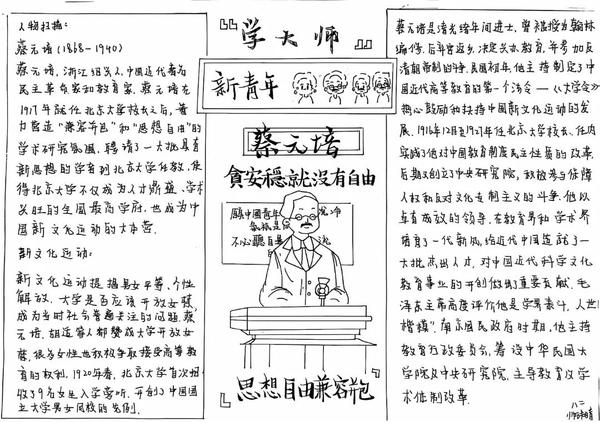 人物扫描:
蔡元培(1868-1940)
蔡元培,浙江绍兴人,中国近代著名
民主革命家和教育家。蔡元培在
1917年就任北京大学校长之后,着
力营造"兼容并包"和"思想自由"的
学术研究氛围,聘请了一大批具有
新思想的学者到北京大学任教,使
得北京大学不仅成为人才鼎盛、学术
兴旺的全国最高学府,也成为中
国新文化运动的大本营。
新文化运动:
新文化运动提倡男女平等、个性
解放。大学是否应该开放女禁,
成为当时社会普遍关注的问题,蔡
元培、胡适等人都赞成大学开放女
禁,很多女性也积极争取接受高等教
育的权利,1920年春,北京大学首次招
收了9名女生入学旁听,开创了中国国
立大学男女同校的先例。
“学大师”
新青年
蔡元培
貪安穩就沒有自由
願中國青年
不必聽自暴
思想自由兼容并包
蔡元培是清光绪年间进士,曾被授为翰林
编修,后辞官返乡,决定兴办教育,并参加反
清朝帝制的斗争,民国初年,他主持制定了中
国近代高等教育的第一个法令——《大学令》
热心鼓励和扶持中国新文化运动的发
展,1916年12月至1927年任北京大学校长,任内
实践了他对中国教育制度民主性质的改革,
后期又创立了中央研究院,积极参与保障
人权和反对文化专制主义的斗争。他以
卓有成效的领导,在教育界和学术界
培育了一代新风,给近代中国造就了一
大批杰出人才,对中国近代科学文化
教育事业的开创做出了重要贡献,毛
泽东主席高度评价他是学界泰斗,人世
楷模",南京国民政府时期,他主持
教育行政委员会,筹设中华民国大
学院及中央研究院,主导教育及学
术体制改革.
八二